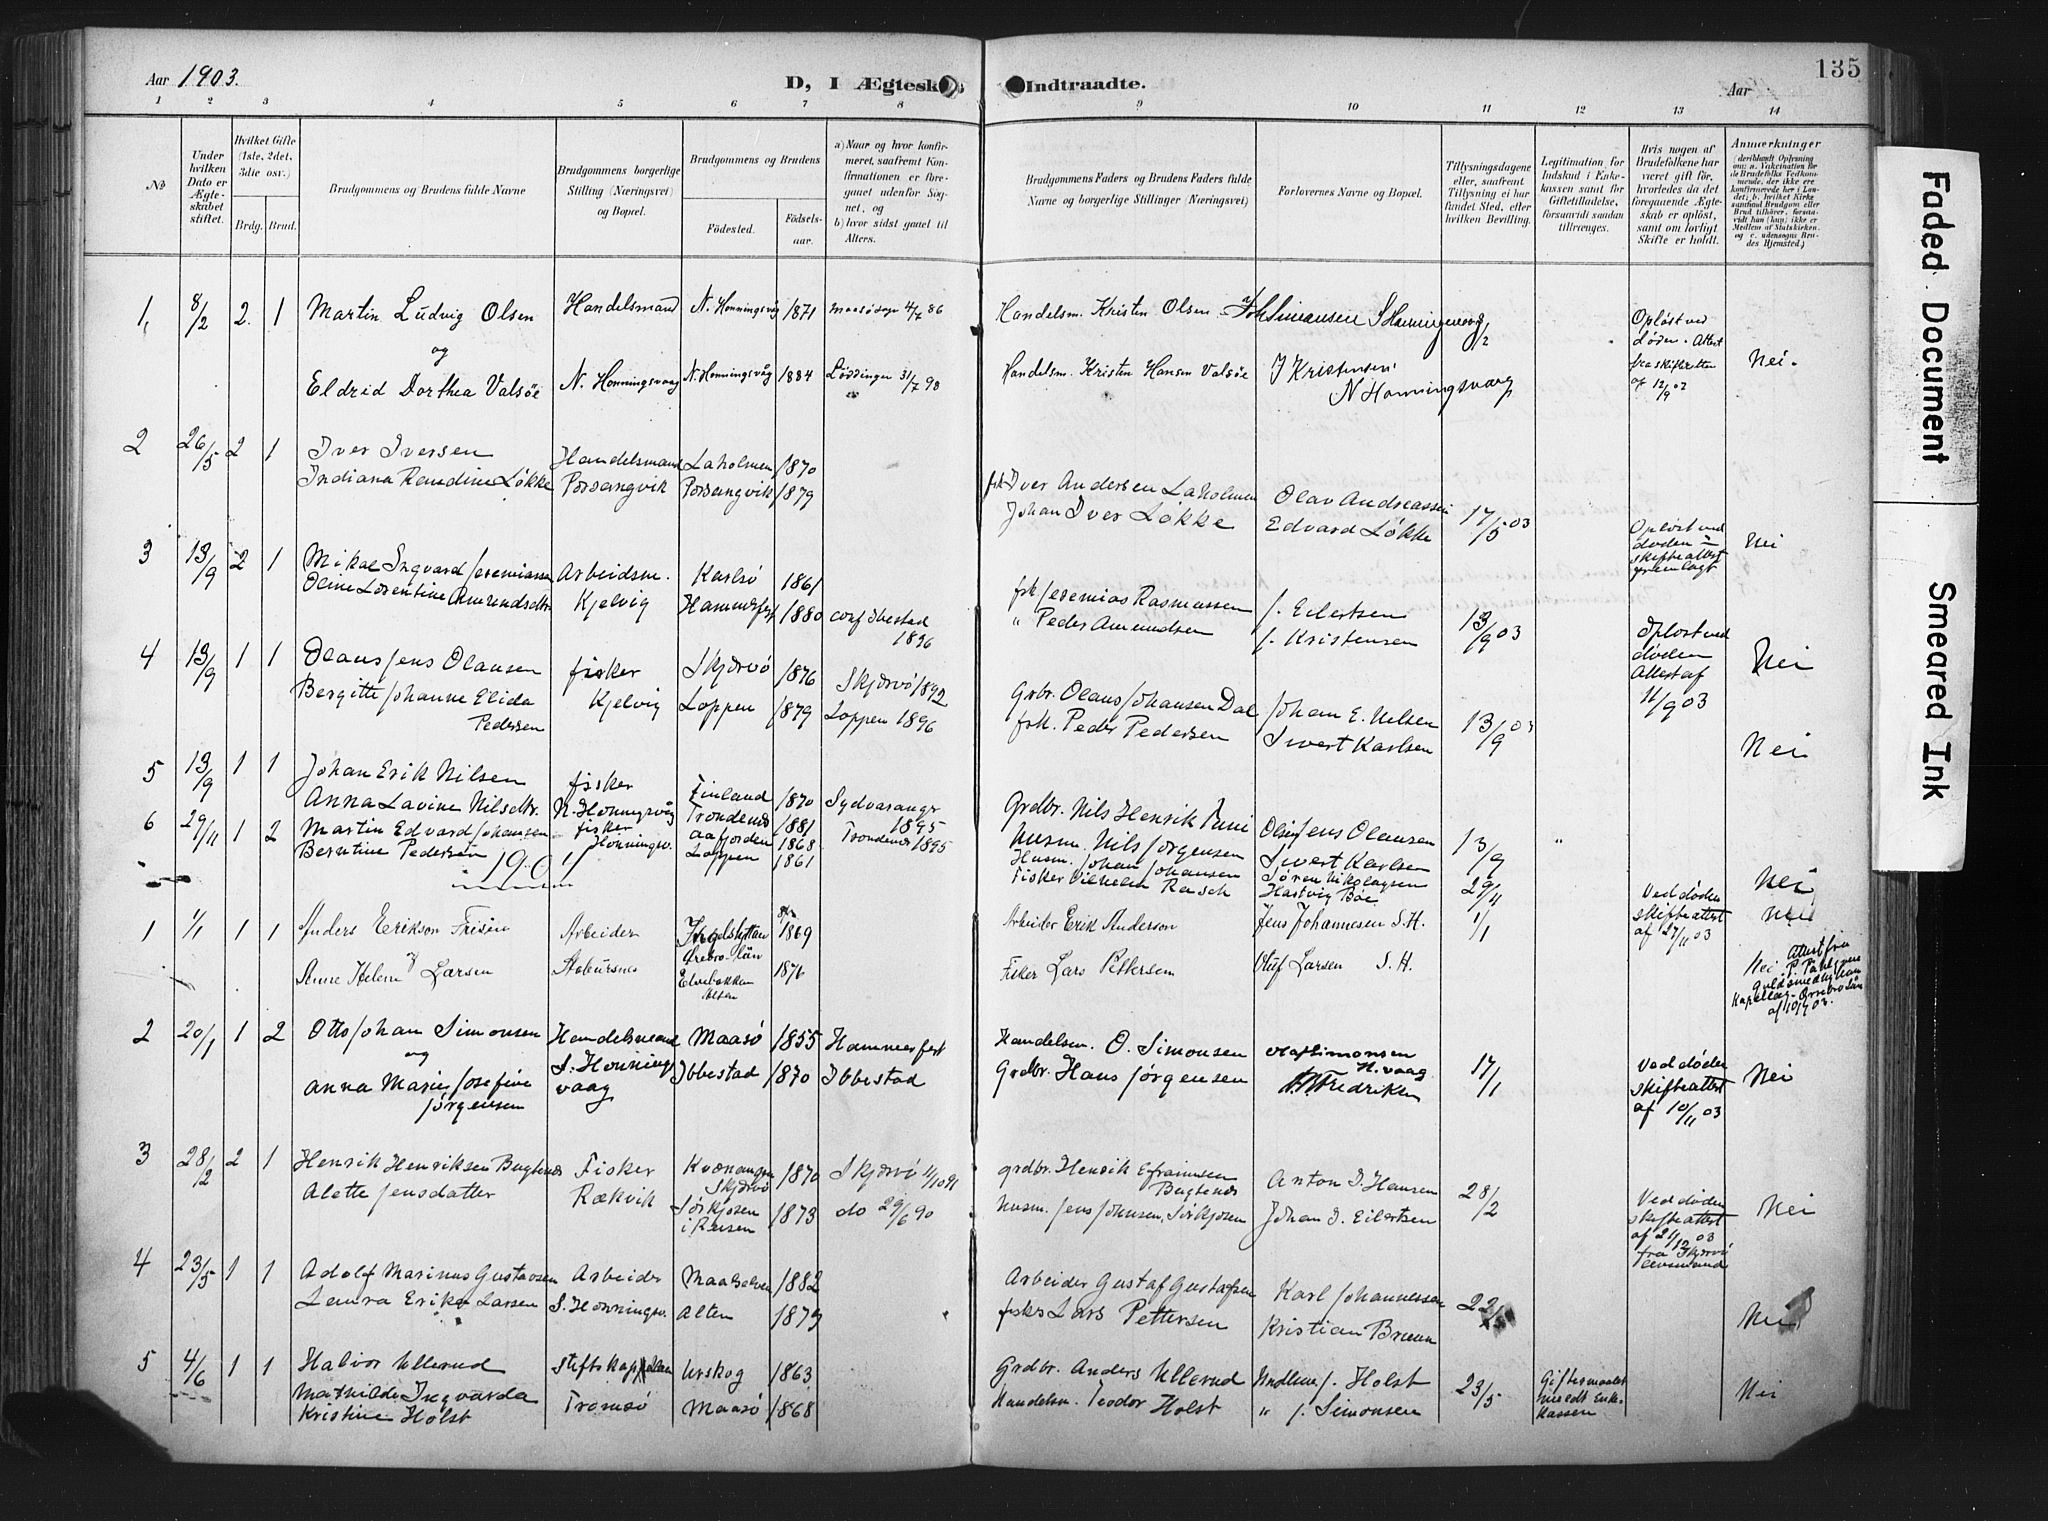 Aar 1903.
D, I Ægtesk
Indtraadte.
Aar
135
1 2 3 4 5 6 7 8 9 10 11 12 13 14
No
Under hvilken Dato er Ægteskabet stiftet.
Hvilket Gifte (1ste, 2det, 3die osv.)
Brdg. Brud.
Brudgommens og Brudens fulde Navne
Brudgommens borgerlige Stilling (Næringsvei) og Bopæl.
Brudgommens og Brudens
Fødested.
Fødselsaar.
a) Naar og hvor konfirmeret, saafremt Konfirmationen er foregaaet udenfor Sognet, og
b) hvor sidst gaaet til Alters.
Brudgommens Faders og Brudens Faders fulde Navne og borgerlige Stillinger (Næringsvei)
Forlovernes Navne og Bopæl.
Tillysningsdagene eller, saafremt Tillysning ei har fundet Sted, efter hvilken Bevilling.
Legitimation for Indskud i Enkekassen samt for Giftetilladelse, forsaavidt saadan tiltrænges.
Hvis nogen af Brudefolkene har været gift før, hvorledes da det foregaaende Ægteskab er opløst, samt om lovligt Skifte er holdt.
Anmerkninger
1, 8/2 2. 1 Martin Ludvig Olsen Handelsmand N. Honningsvåg 1871 Maasø 86 Handelsm. Kristen Olsen S Honningsvaag Opløst ved Døden. Attest
og
Eldrid Dorthea Valsöe N. Honningsvaag N. Honningsvåg 1884 Lødingen 31/7 98 Handelsm. Kristen Hansen Valsöe J Kristensen N Honningsvaag fra skifteretten af 12/9 02 Nei.
2 26/5 2 1 Iver Iversen Handelsmand Laholmen 1870 fsk Iver Andersen Laholmen Olav Andreassen 17/5 03
Indiana Løkke Porsangvik Porsangvik 1879 Johan Iver Løkke Edvard Løkke Opløst ved døden skifteattest fremlagt Nei
3 13/9 2 1 Mikal Ingvard Jeremiassen Arbeidsm. Karlsö 1861 fsk. Jeremias Rasmussen J. Eilertsen 13/9 03
Oline Lorentine Amundsdtr. Kjelvig Hammerfest 1880 conf Ibestad 1896 " Peder Amundsen J. Kristensen Opløst ved døden Attest af 11/9 03 Nei
4 13/9 1 1 Olaus Jens Olausen fisker Skjærvö 1876 Skjærvö 1892 Grbr. Olaus Johansen Dal Johan E. Nilsen 13/9 03
Bergitte Johanne Elida Pedersen Kjelvig Loppen 1879 Loppen 1896 fsk. Peder Pedersen Sivert Karlsen Nei
5 13/9 1 1 Johan Erik Nilsen fisker Finland 1870 Sydvaranger 1895 Grdbr. Nils Henrik Olsen Jens Olausen 13/9
Anna Lavine Nilsdtr. N. Honningsvåg Trondenes 1881 Trondenes 1895 Husm. Nils Jörgensen Sivert Karlsen Nei
6 29/11 1 2 Martin Edvard Johansen fisker aafjorden 1868 Husm. Johan Johansen Sören Nikolaysen 29/11
Berntine Pedersen Honningsv. Loppen 1861 Fisker Vilhelm Rasch Hartvig Bøe Ved døden skifteattest af 27/11 03 Nei
1904
1 1/1 1 1 Anders Erikson Frisen Arbeider 1869 Arbeider Erik Anderson Jens Johannesen S.H. 1/1
og
Anne Helene Larsen Örebro län Elvebakken Alten 1876 Fisker Lars Pettersen Oluf Larsen S.H. Nei. Attest fra af 10/9 03.
2 20/1 1 2 Otto Johan Simonsen Handelsmand Maasö 1855 Hammerfest Handelsm. O. Simonsen Olaf Simonsen H. vaag 17/1
og
Anna Marie Josefine Jörgensen S. Honningsvaag Ibbestad 1870 Ibbestad Grdbr. Hans Jörgensen Fredriksen Ved döden skifteattest af 10/11 03 Nei
3 28/2 2 1 Henrik Henriksen Bugtenes Fisker Kvænangen Skjærvö 1870 Skjærvö 11/10 91 grdbr. Henrik Efraimsen Bugtenes Anton J. Hansen 28/2
Alette Jensdatter Rækvik Sörkjosen i Reisen 1873 do 29/6 90 husm. Jens Johnsen, Sörkjosen Johan J. Eilertsen Ved döden skifteattest af 21/12 03 fra Skjervö Lensmand Nei
4 23/5 1 1 Adolf Marinus Gustavsen Arbeider Maalselven 1882 Arbeider Gustaf Gustafsen Karl Johannessen 22/5
Laura Erika Larsen S. Honningsv. Alten 1879 fisker Lars Pettersen Kristian Bruun Nei
5 4/6 1 1 Halvor Ullerud Stiftskapellan Urskog 1863 Grdbr. Anders Ullerud J. Holst 23/5 Giftermaalet meldt Enkekassen
Mathilde Ingvarda Kristine Holst Tromsö Maasö 1868 Handelsm. Teodor Holst " J. Simonsen Nei
Faded Document
Smeared Ink